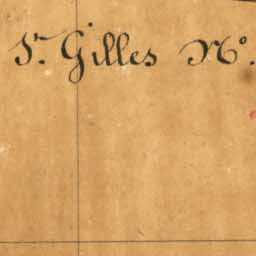 St. Gilles No.